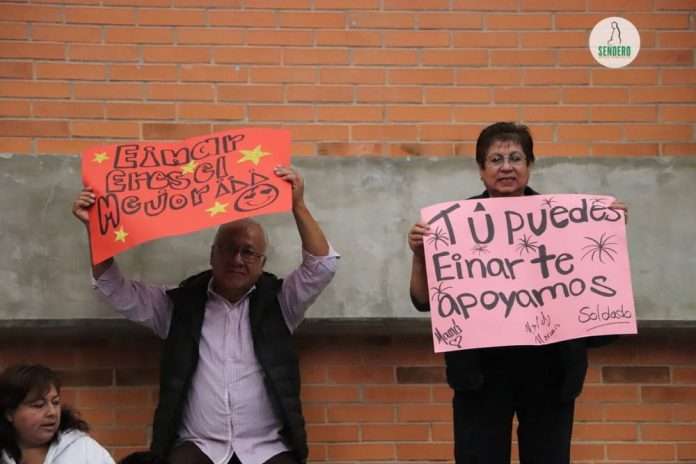 Einar
Eres el
Mejor!!
Tú puedes
Einar te
apoyamos
Mamá
Soldado
SENDERO